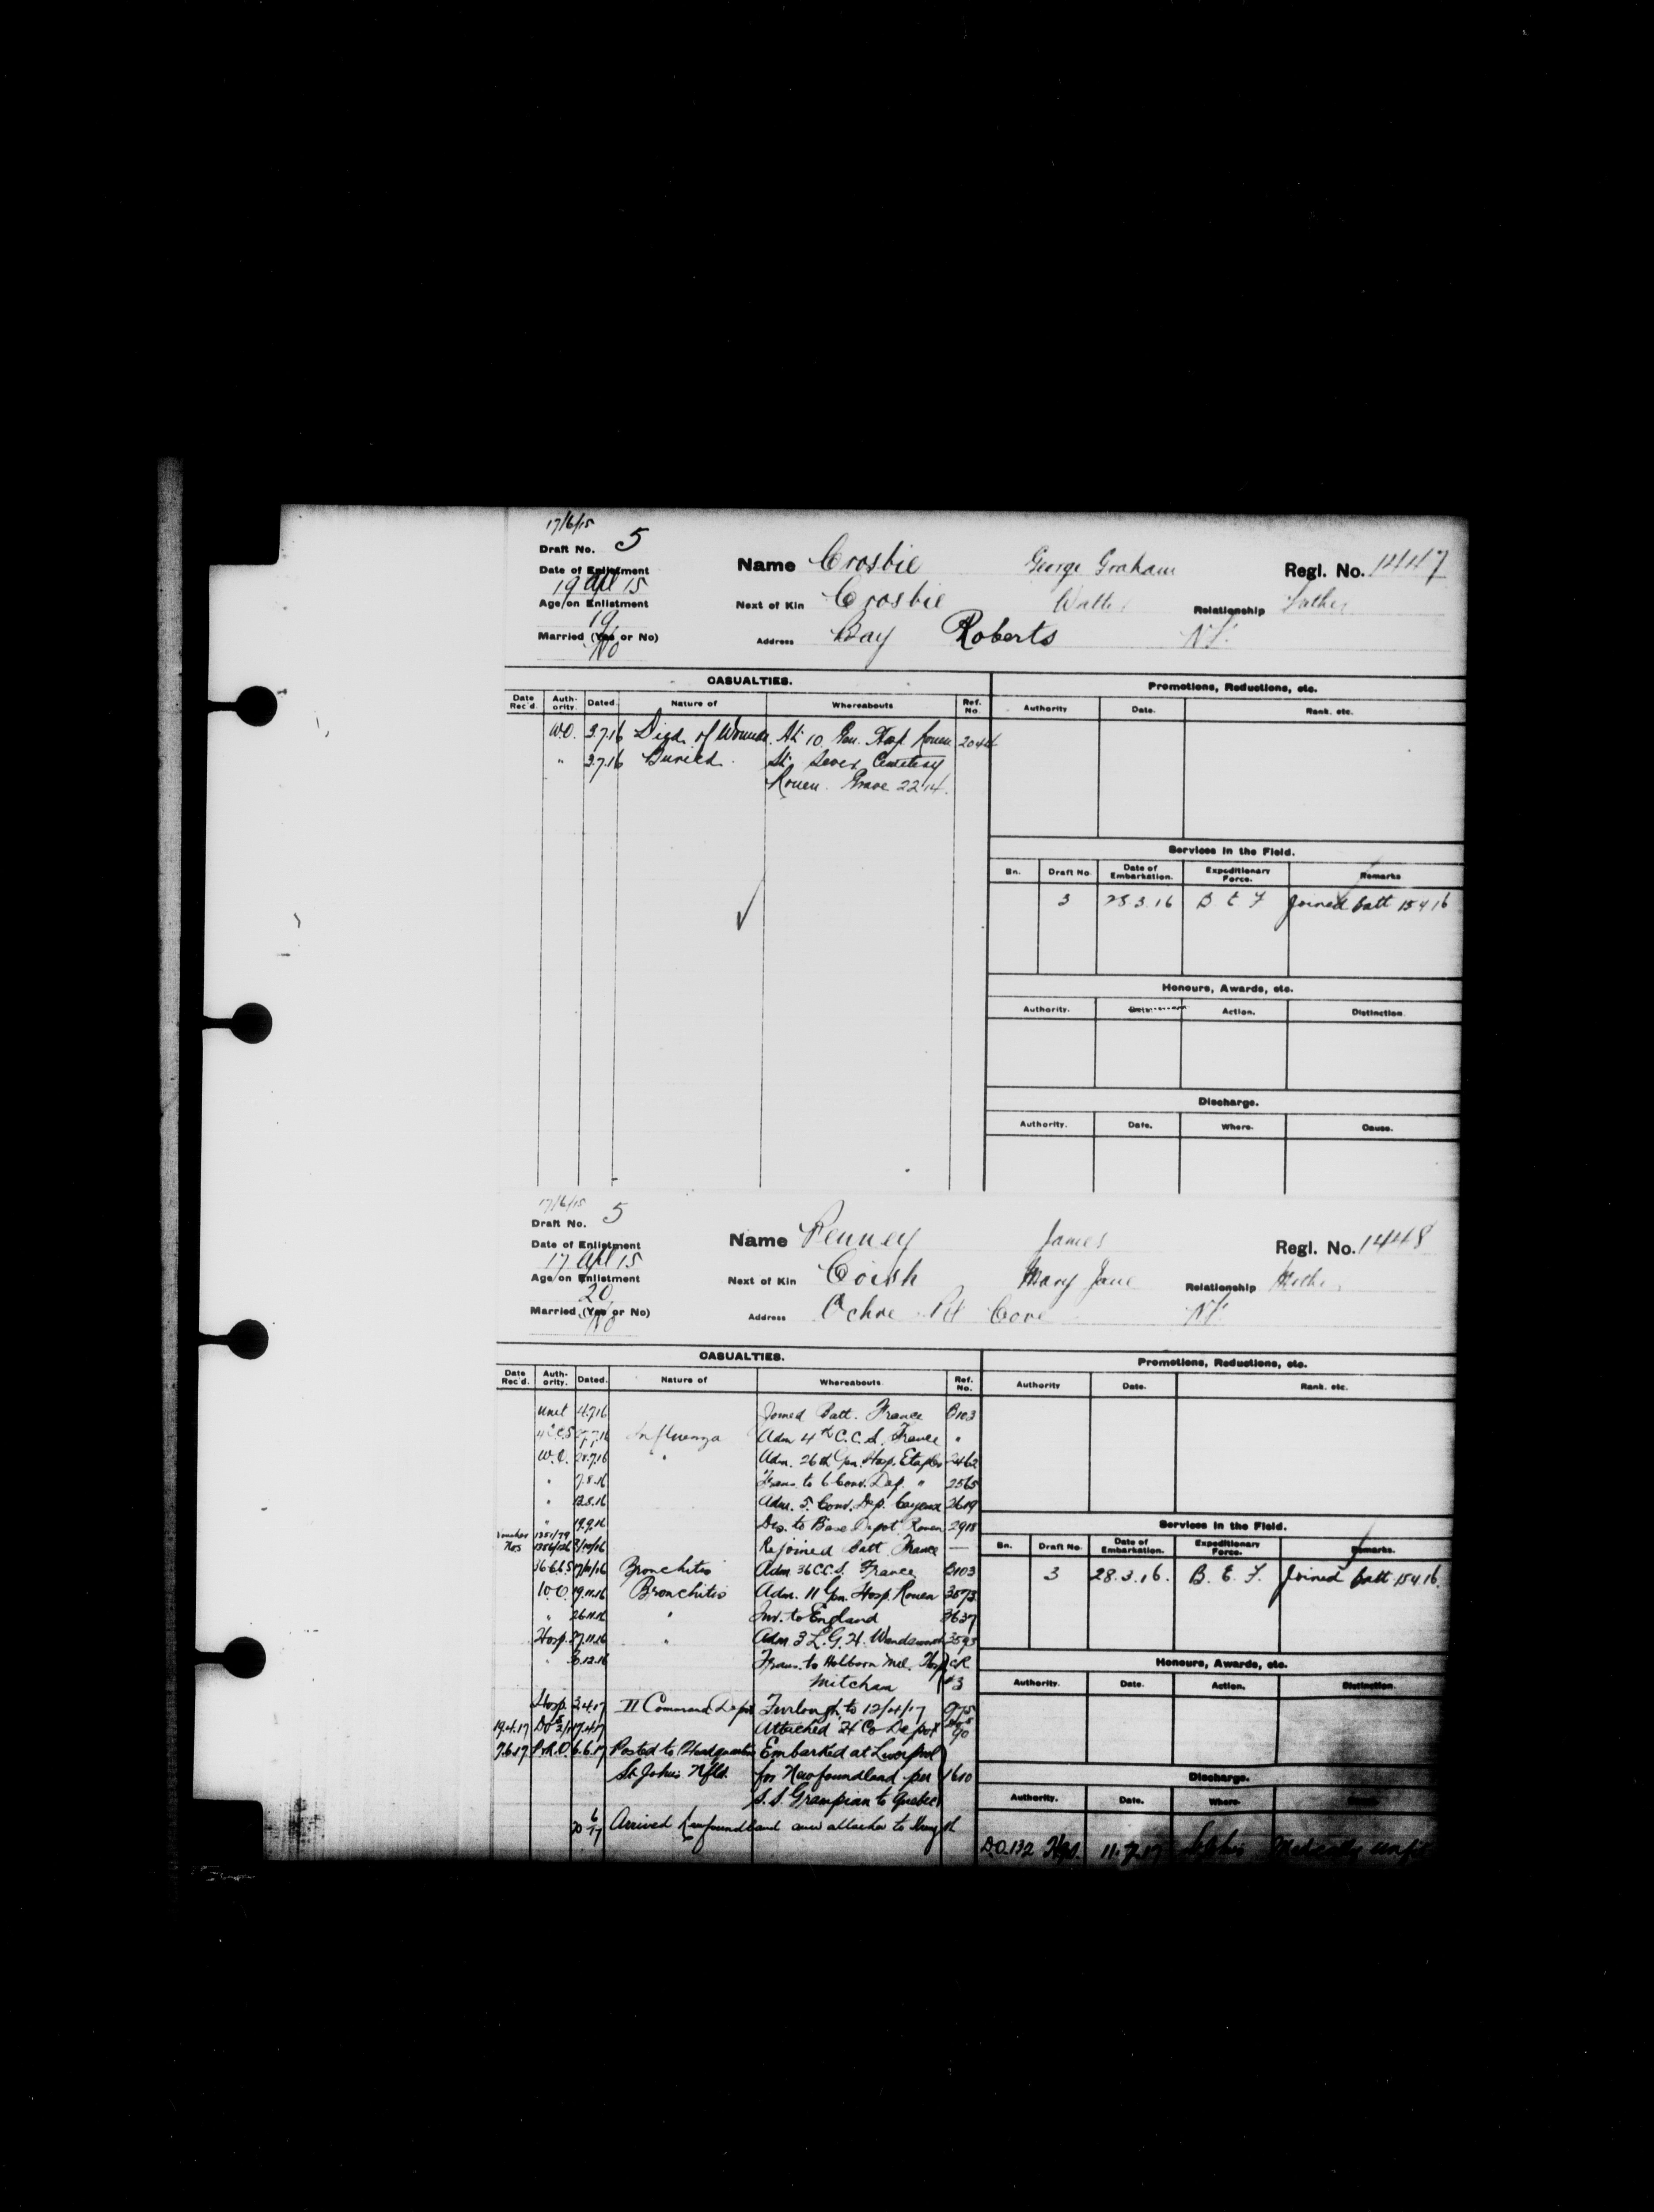 17/6/15
Draft No. 5
Date of Enlistment
19 Apl 15
Age on Enlistment
19
Married (Yes or No)
No
Name Crosbie George Graham Regl. No. 1447
Next of Kin Crosbie Walter Relationship Father
Address Bay Roberts Nf.
CASUALTIES.
Date Rec'd. Authority. Dated. Nature of Whereabouts Ref. No.
W.O. 3.7.16 Died of Wounds. At 10 Gen. Hosp. Rouen 2044
" 3.7.16 Buried. St. Sever Cemetery
Rouen. Grave 2214.
Promotions, Reductions, etc.
Authority Date. Rank, etc.
Services in the Field.
Bn. Draft No. Date of Embarkation. Expeditionary Force. Remarks
3 28.3.16 B E F Joined Batt 15 4 16
Honours, Awards, etc.
Authority. Action. Distinction.
Discharge.
Authority. Date. Where. Cause.
17/6/15
Draft No. 5
Date of Enlistment
17 Apl 15
Age on Enlistment
20
Married (Yes or No)
No
Name Penney James Regl. No. 1448
Next of Kin Coish Mary Jane Relationship Mother
Address Ochre Pit Cove Nf.
CASUALTIES.
Date Rec'd. Authority. Dated. Nature of Whereabouts Ref. No.
Unit 4.7.16 Joined Batt. France B103
4 C.C.S 27.7.16 Influenza Adm 4th C.C.S. France "
W.O. 28.7.16 " Adm. 26th Gen. Hosp. Etaples 2462
" 7.8.16 Trans. to 6 Conv. Dep. " 2565
" 12.8.16 Adm. 5. Conv. Dep. 2619
" 19.9.16 Dis. to Base Depot Rouen 2918
Rejoined Batt France —
17/11/16 Bronchitis Adm 36 C.C.S. France B103
W.O. 19.11.16 Bronchitis Adm. 11 Gen. Hosp. Rouen 3573
" 26.11.16 " Inv. to England 3637
Hosp. 27.11.16 " Adm 3 L.G.H. Wandsworth 3593
" 8.12.16 Trans. to Holborn Mil. Hosp CR
Mitcham #3
Hosp. 3.4.17 II Command Depot Furlough to 12/4/17 975
19.4.17 17.4.17 Attached "H" Co Depot
7.6.17 P.&R.O 6.6.17 Posted to Headquarters Embarked at Liverpool
St. John's Nfld. for Newfoundland per 1610
S.S. Grampian to Quebec
20 6/17 Arrived Newfoundland and attached to Strength
Promotions, Reductions, etc.
Authority Date. Rank, etc.
Services in the Field.
Bn. Draft No. Date of Embarkation. Expeditionary Force. Remarks.
3 28.3.16. B. E. F. Joined Batt 15 4 16.
Honours, Awards, etc.
Authority. Date. Action. Distinction
Discharge.
Authority. Date. Where. Cause.
D.O.132 Hqs. 11.7.17 St Johns Medically unfit